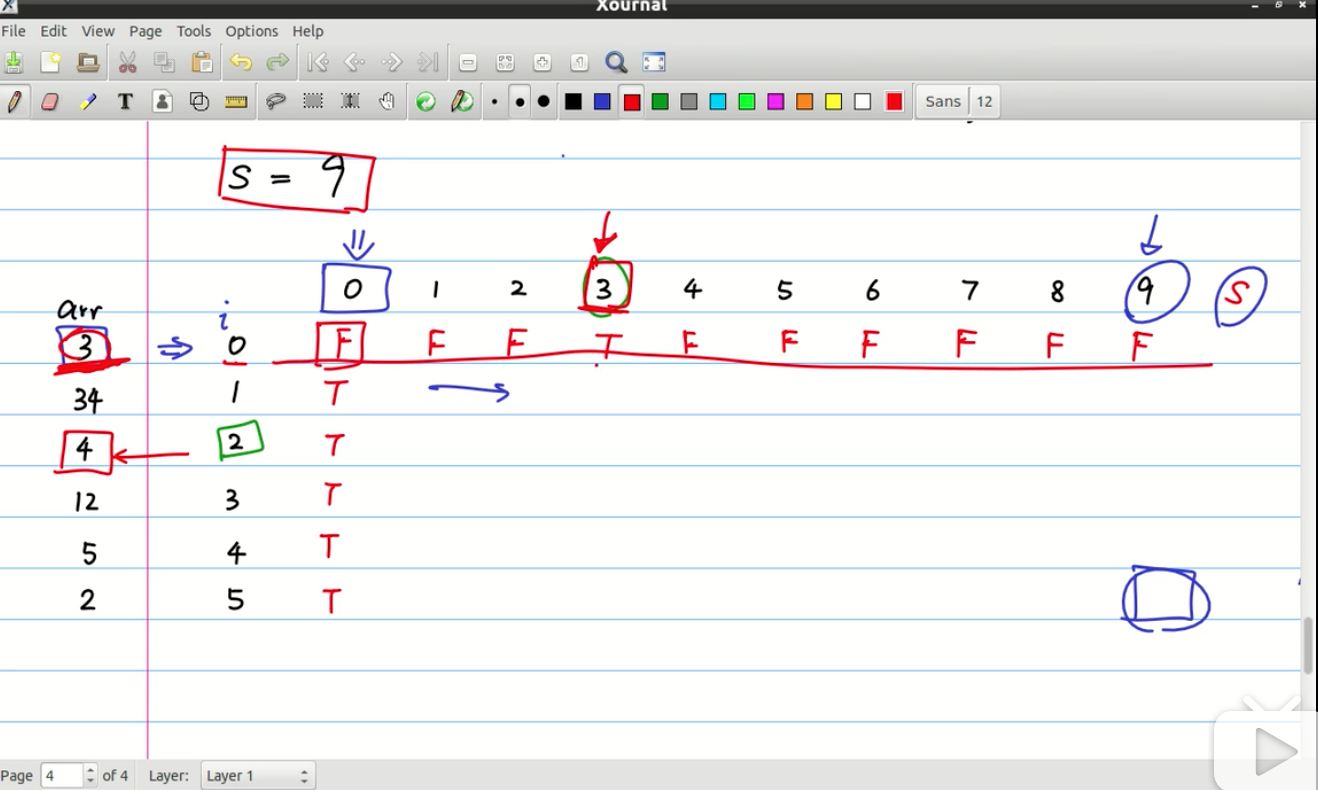 Xournal
File Edit View Page Tools Options Help
T Sans 12
S = 9
0 1 2 3 4 5 6 7 8 9 S
arr i
3 0 F F F T F F F F F F
34 1 T
4 2 T
12 3 T
5 4 T
2 5 T
Page 4 of 4 Layer: Layer 1